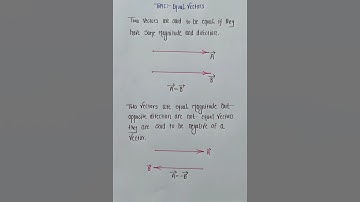 Equal Vectors
Two vectors are said to be equal if they
have same magnitude and direction.
A
B
A = B
Two vectors are equal magnitude but
opposite direction are not equal vectors
they are said to be negative of a
vector.
A
B
A = -B